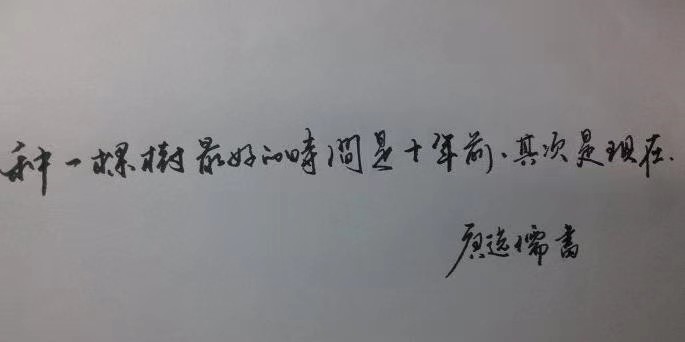 种一棵樹最好的時間是十年前、其次是現在.
儒書